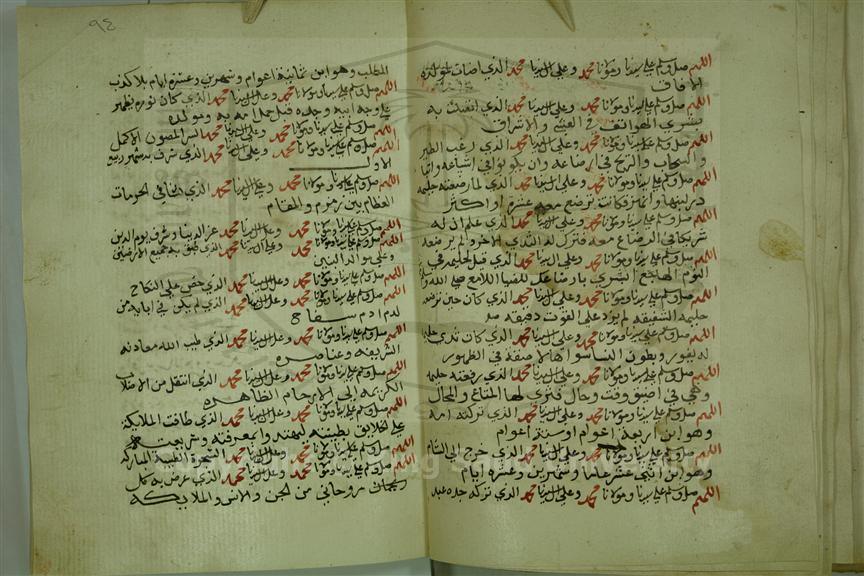 اللهم صل وسلم على سيدنا ومولانا محمد وعلى ال سيدنا محمد الذي اضات لمولده
الافاق
اللهم صل وسلم على سيدنا ومولانا محمد وعلى ال سيدنا محمد الذي به
الهواتف في العشي والاشراق
اللهم صل وسلم على سيدنا ومولانا محمد وعلى ال سيدنا محمد الذي رغب الطير
والسحاب والريح في ارضاعه وان
اللهم صل وسلم على سيدنا ومولانا محمد وعلى ال سيدنا محمد الذي لما رضعته حليمه
معه عشرة او اكثر
اللهم صل وسلم على سيدنا ومولانا محمد وعلى ال سيدنا محمد الذي علم ان له
شريكا في الرضاع معه فترك له الثدي الاخر ولم يرضعه
اللهم صل وسلم على سيدنا ومولانا محمد وعلى ال سيدنا محمد الذي قيل لحليمه في
النوم
اللهم صل وسلم على سيدنا ومولانا محمد وعلى ال سيدنا محمد الذي كان حين ترضعه
حليمه الشفيقه لم يزد على القوت دقيقه
اللهم صل وسلم على سيدنا ومولانا محمد وعلى ال سيدنا محمد الذي كان ثدي
في الظهور
اللهم صل وسلم على سيدنا ومولانا محمد وعلى ال سيدنا محمد الذي رفعته حليمه
وهي في اضيق وقت وحال فنزى لها المتاع والمال
اللهم صل وسلم على سيدنا ومولانا محمد وعلى ال سيدنا محمد الذي تركته امه
وهو ابن اربعة اعوام او ستة اعوام
اللهم صل وسلم على سيدنا ومولانا محمد وعلى ال سيدنا محمد الذي خرج الى الشام
وهو ابن اثنى عشر عاما وشهرين وعشرة ايام
اللهم صل وسلم على سيدنا ومولانا محمد وعلى ال سيدنا محمد الذي تركه جده عبد
٩٤
المطلب وهو ابن ثمانية اعوام وشهرين وعشرة ايام بلا كذب
اللهم صل وسلم على سيدنا ومولانا محمد وعلى ال سيدنا محمد الذي كان نوره يظهر
في وجه ابيه وجده قبل حمل امه به ومولده
اللهم صل وسلم على سيدنا ومولانا محمد وعلى ال سيدنا محمد السر المصون الاكمل
اللهم صل وسلم على سيدنا ومولانا محمد وعلى ال سيدنا محمد الذي شرف به شهر ربيع
الاول
اللهم صل وسلم على سيدنا ومولانا محمد وعلى ال سيدنا محمد الذي الحرمات
العظام بين زمزم والمقام
اللهم صل وسلم على سيدنا ومولانا محمد وعلى ال سيدنا محمد عز الدنيا وشرف يوم الدين
اللهم صل وسلم على سيدنا ومولانا محمد وعلى ال سيدنا محمد الذي جميع الارضين
وعلى موالد النبين
اللهم صل وسلم على سيدنا ومولانا محمد وعلى ال سيدنا محمد الذي حض على النكاح
اللهم صل وسلم على سيدنا ومولانا محمد وعلى ال سيدنا محمد الذي لم يكن في ابايه من
لدم ادم سفاح
اللهم صل وسلم على سيدنا ومولانا محمد وعلى ال سيدنا محمد الذي طيب الله معادنه
الشريفه وعناصره
اللهم صل وسلم على سيدنا ومولانا محمد وعلى ال سيدنا محمد الذي انتقل من الاصلاب
الكريمه الى الارحام الطاهره
اللهم صل وسلم على سيدنا ومولانا محمد وعلى ال سيدنا محمد الذي طافت الملايكه
على الخلايق بطينته
اللهم صل وسلم على سيدنا ومولانا محمد وعلى ال سيدنا محمد الشجرة الطيبة المباركه
اللهم صل وسلم على سيدنا ومولانا محمد وعلى ال سيدنا محمد الذي عرض به كل
روحاني من الجن والانس والملايكه